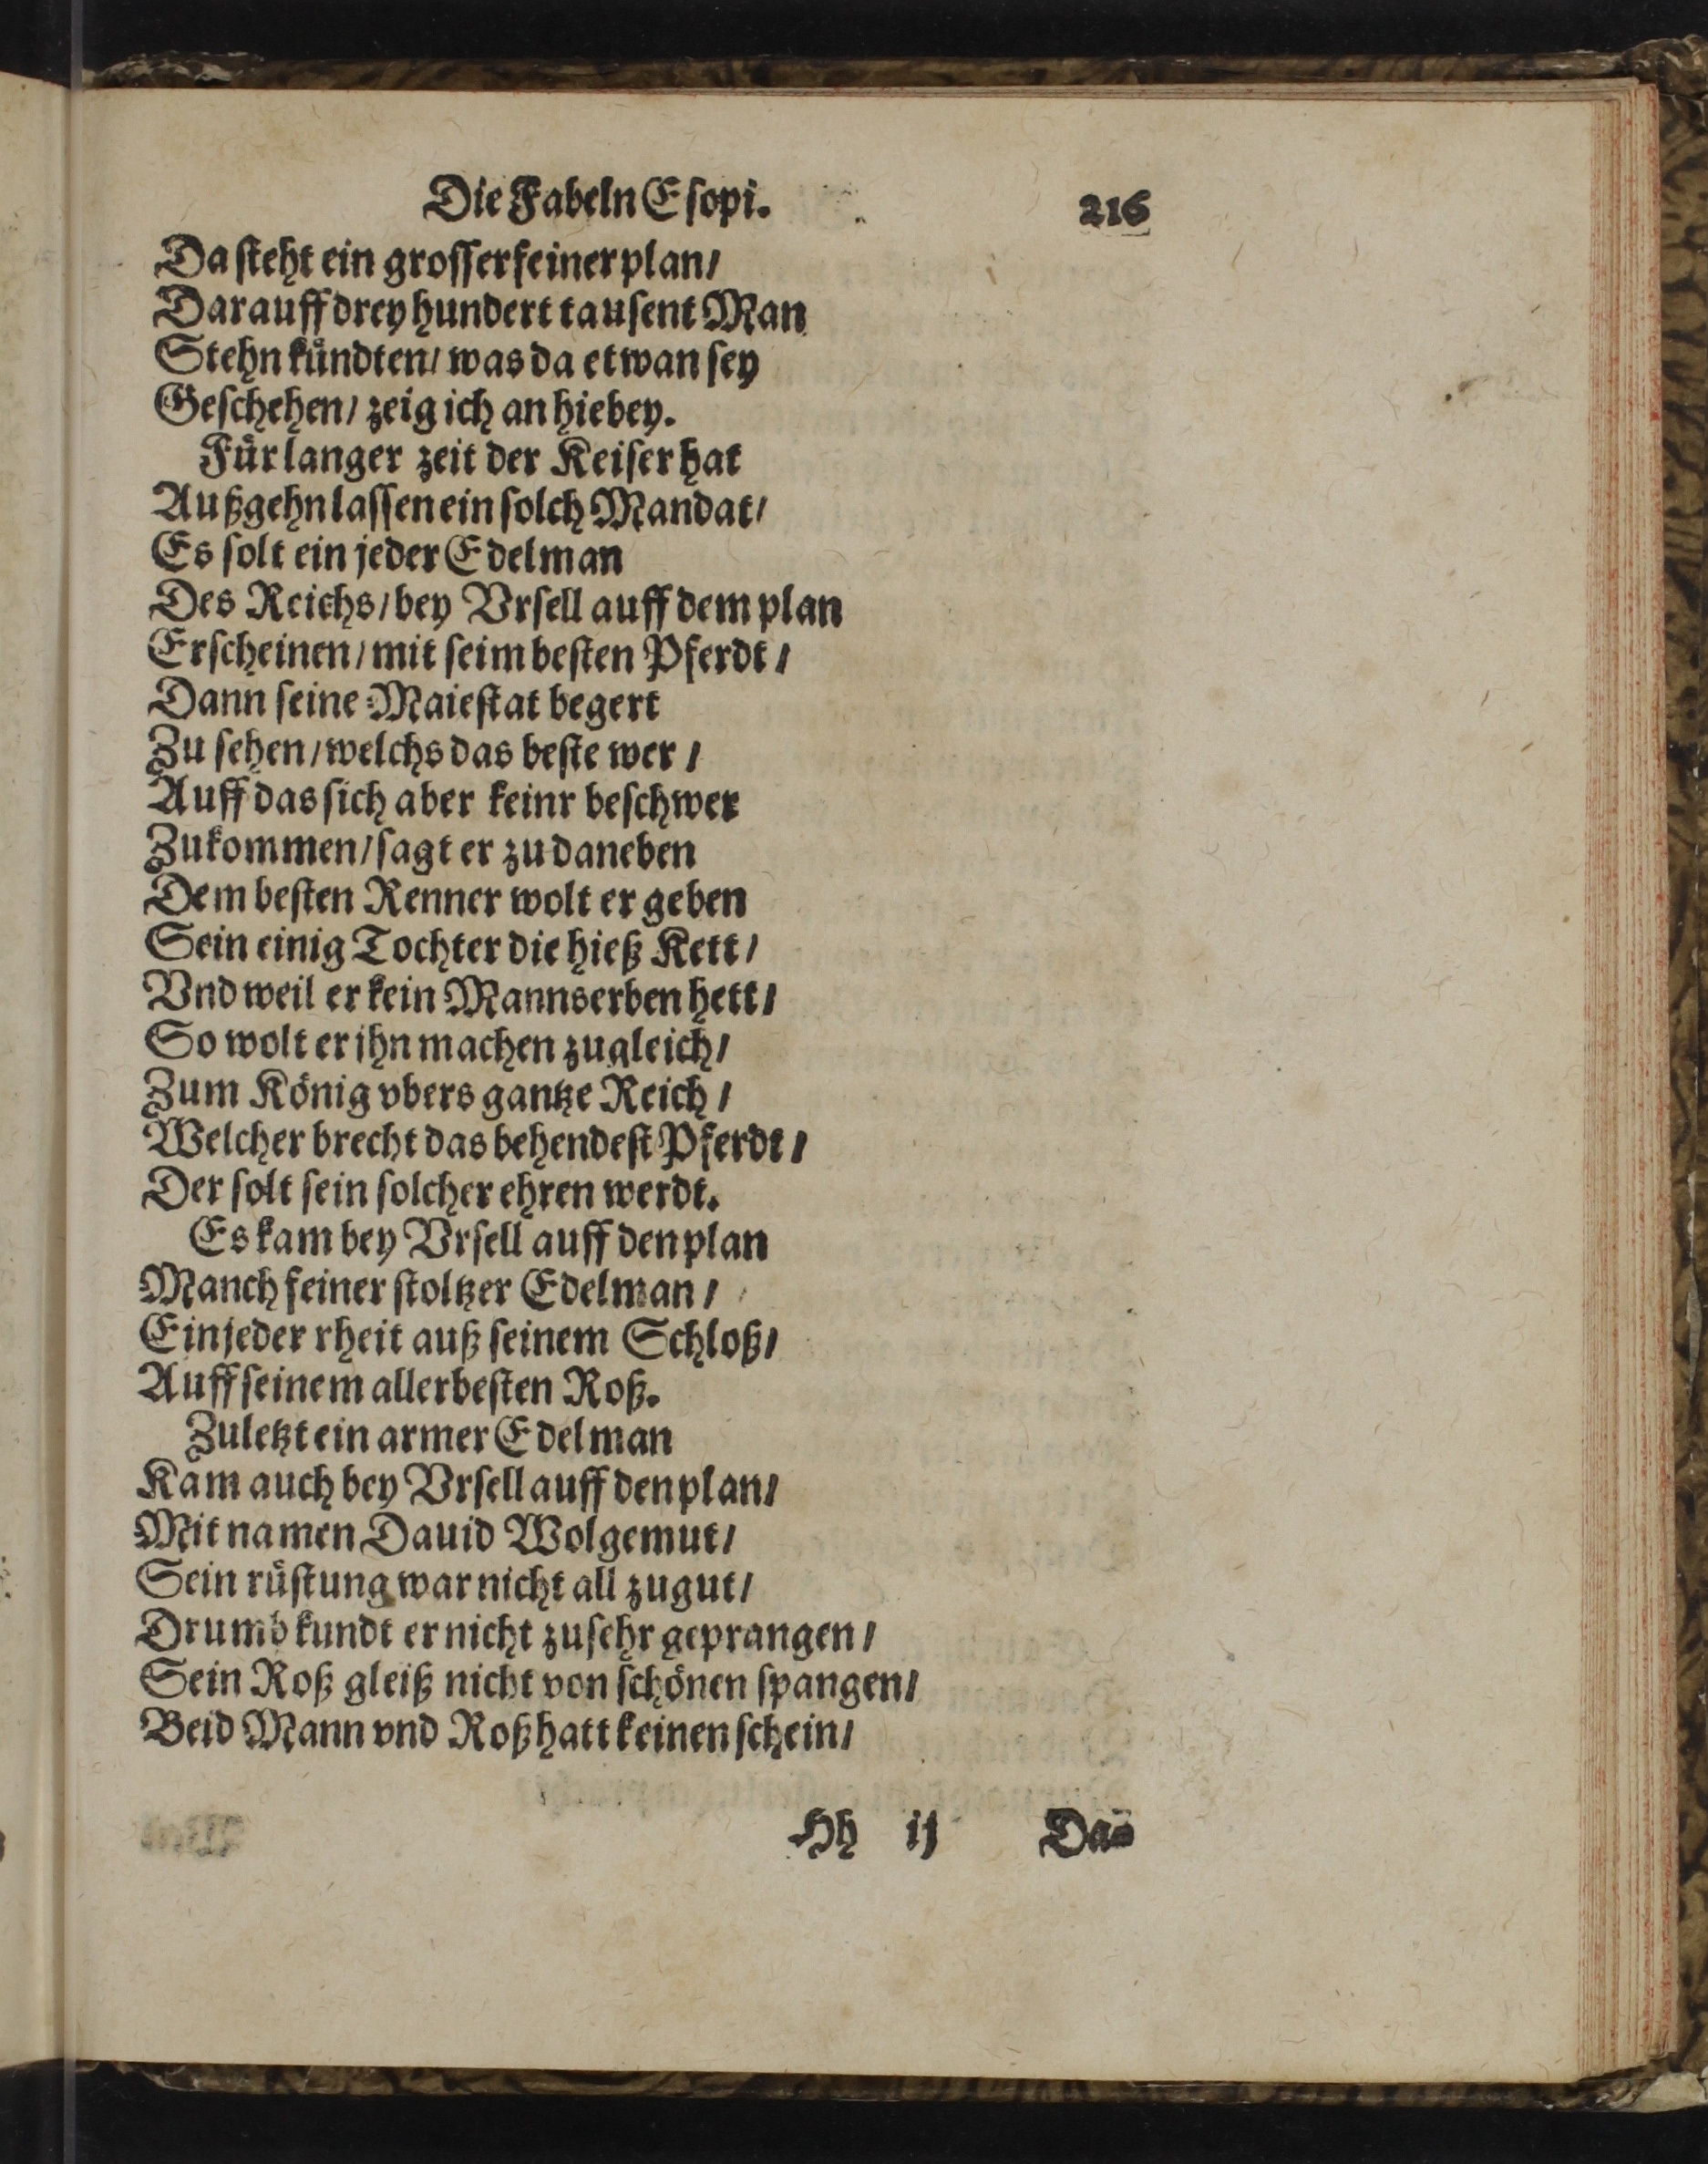 Die Fabeln Esopi. 216
Da steht ein grosser feiner plan/
Darauff drey hundert tausent Man
Stehn kuͤndten/ was da etwan sey
Geschehen/ zeig ich an hiebey.
Fuͤr langer zeit der Keiser hat
Außgehn lassen ein solch Mandat/
Es solt ein jeder Edelman
Des Reichs/ bey Vrsell auff dem plan
Erscheinen/ mit seim besten Pferdt/
Dann seine Maiestat begert
Zu sehen/ welchs das beste wer/
Auff das sich aber keinr beschwer
Zukommen/ sagt er zu daneben
Dem besten Renner wolt er geben
Sein einig Tochter die hieß Kett/
Vnd weil er kein Mannserben hett/
So wolt er ihn machen zugleich/
Zum Koͤnig vbers gantze Reich/
Welcher brecht das behendest Pferdt/
Der solt sein solcher ehren werdt.
Es kam bey Vrsell auff den plan
Manch feiner stoltzer Edelman/
Ein jeder rheit auß seinem Schloß/
Auff seinem allerbesten Roß.
Zuletzt ein armer Edelman
Kam auch bey Vrsell auff den plan/
Mit namen Dauid Wolgemut/
Sein ruͤstung war nicht all zu gut/
Drumb kundt er nicht zu sehr geprangen/
Sein Roß gleiß nicht von schoͤnen spangen/
Beid Mann vnd Roß hatt keinen schein/
Hh ij Das